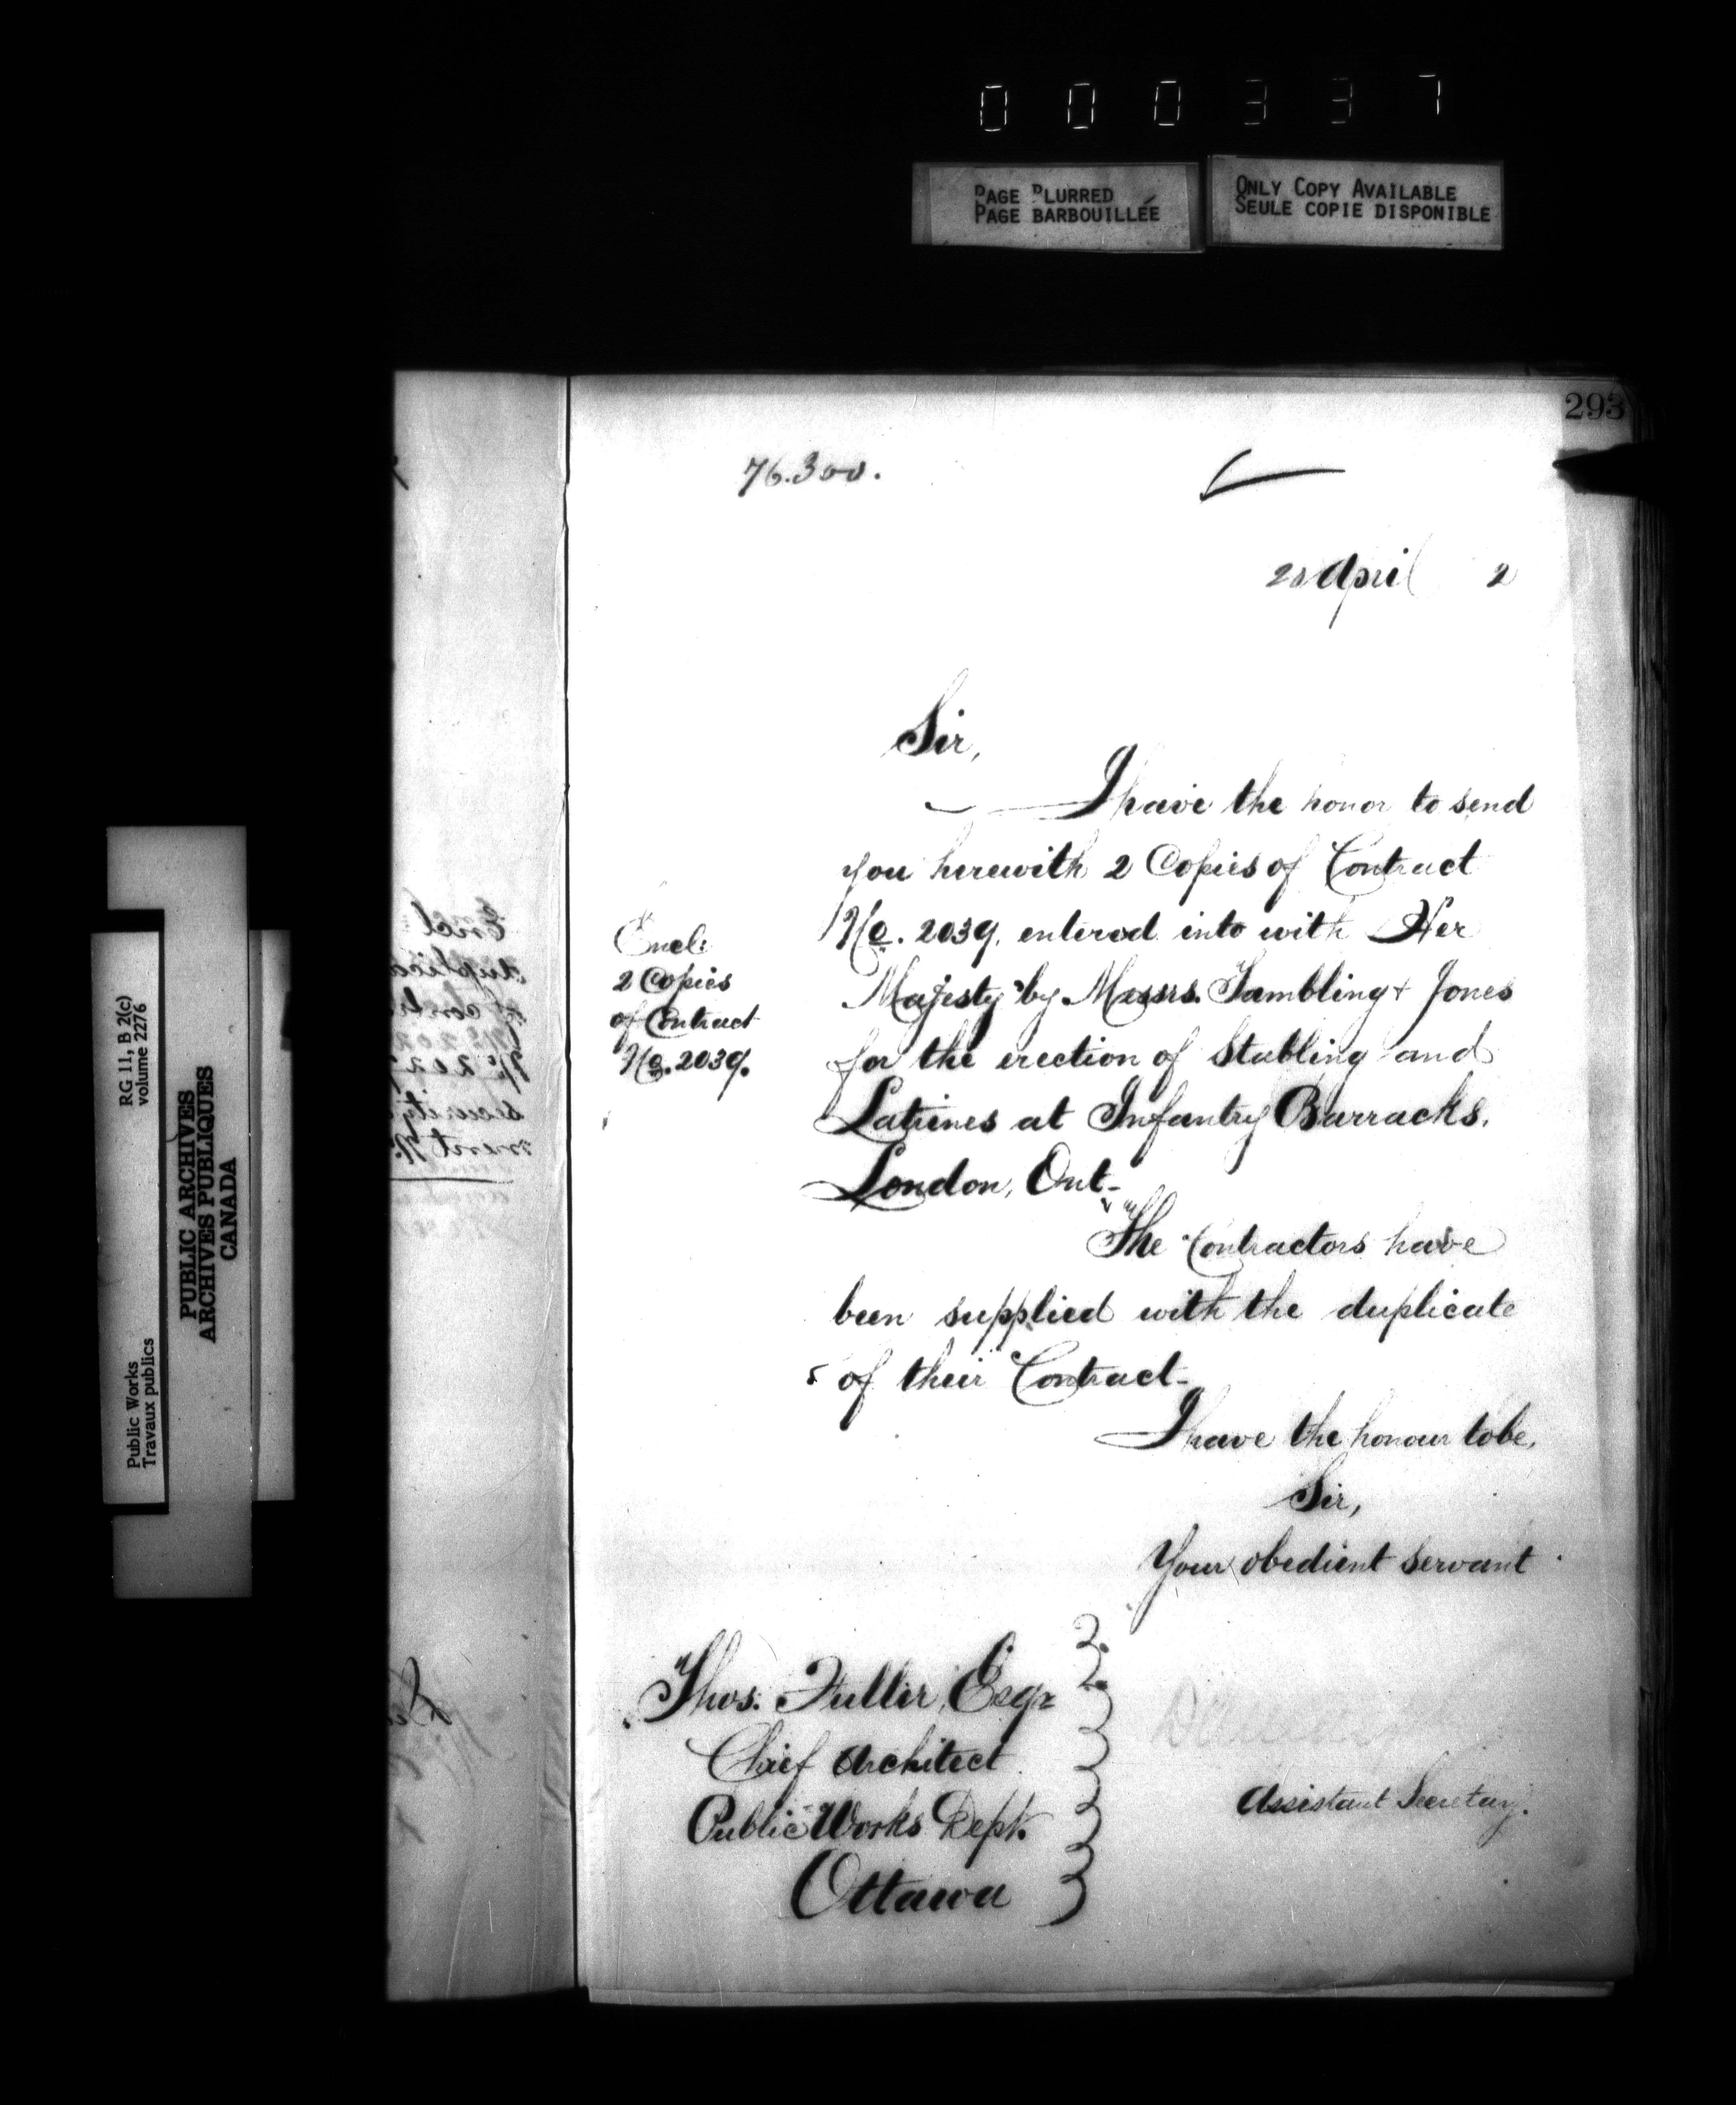 0 0 0 3 3 7
PAGE BLURRED
PAGE BARBOUILLÉE
ONLY COPY AVAILABLE
SEULE COPIE DISPONIBLE
293
76.300.
April 2
Sir,
I have the honor to send
you herewith 2 Copies of Contract
No. 2039. entered into with Her
Majesty by Messrs. Tambling + Jones
for the erection of Stabling and
Latrines at Infantry Barracks.
London, Ont-
Encl:
2 Copies
of Contract
No. 2039.
The Contractors have
been supplied with the duplicate
of their Contract-
I have the honour to be,
Sir,
Your obedient servant
Thos. Fuller, Esqr
Chief Architect
Public Works Dept.
Ottawa
Assistant Secretary.
RG 11, B 2(c)
volume 2276
Public Works
Travaux publics
PUBLIC ARCHIVES
ARCHIVES PUBLIQUES
CANADA